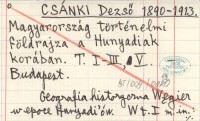 CSÁNKI Dezső 1890-1913.
Magyarország történelmi
földrajza a Hunyadiak
korában. T. I-III, V.
Budapest.
Geografia historyczna Węgier
w epoce Hunyadi'ów. W t. I m. in.: